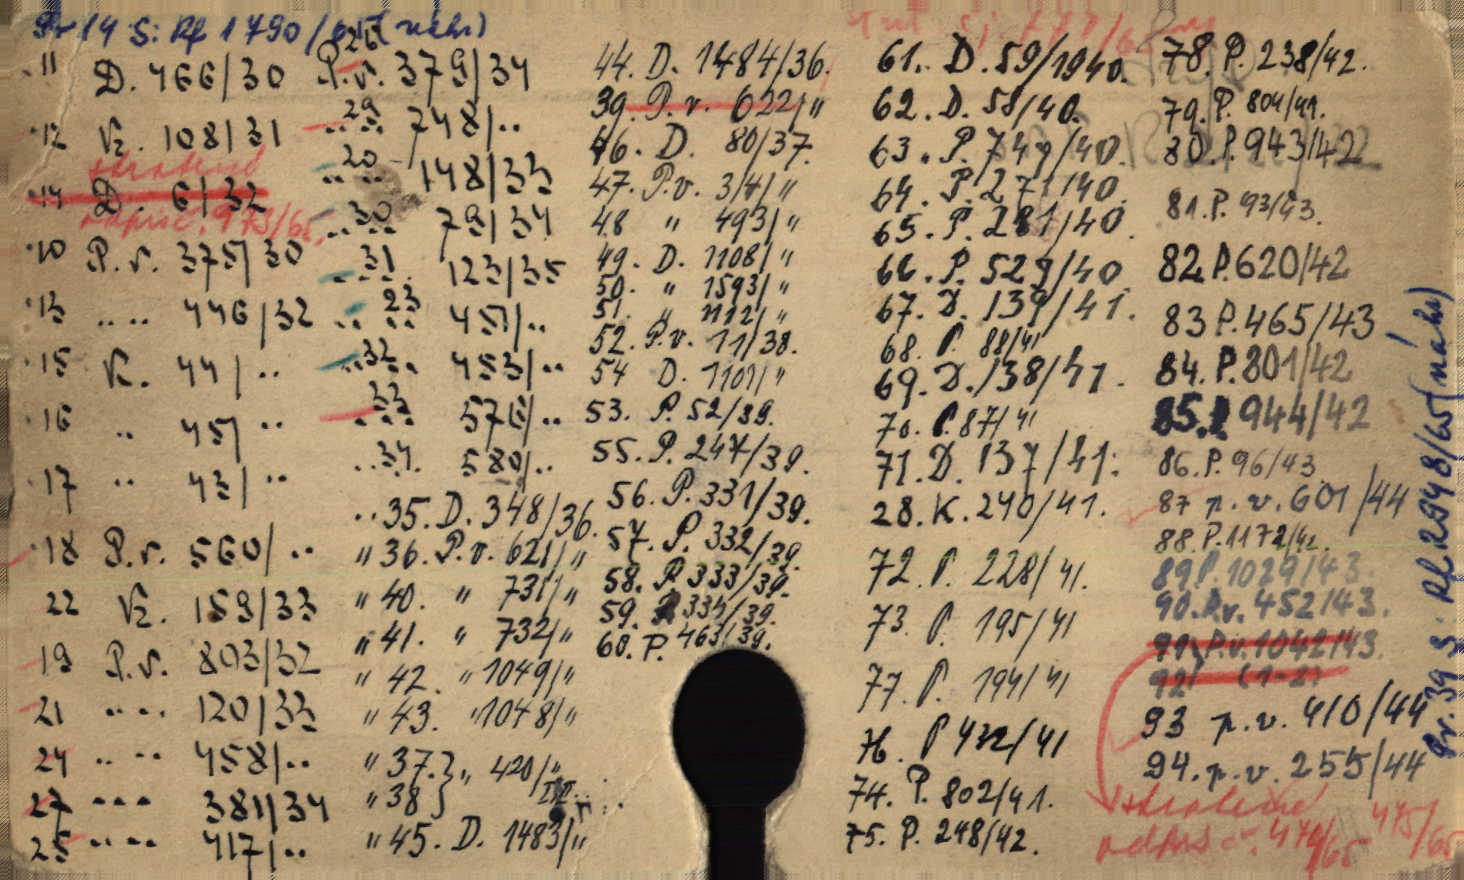 Pr 14 S: Rf 1790/65 (náhr)
11 D. 466/30
12 Vz. 108/31
ztraceno
14 D. 6/32
odpis č. 973/65
10 P.v. 375/30
13 " " 446/32
15 Vz. 44/ "
16 " 45/ "
17 " 43/ "
18 P.v. 560/ "
22 Vz. 159/33
19 P.v. 803/32
21 " " 120/33
24 " " 458/ "
27 " " 381/34
25 " " 417/ "
26 P.v. 379/34
29 " " 748/ "
20 " " 148/33
30 " " 79/34
31 " " 123/35
23 " " 457/ "
32 " " 453/ "
33 " " 576/ "
" 34. 580/ "
" 35. D. 348/36.
" 36. P.v. 621/ "
" 40. " 731/ "
" 41. " 732/ "
" 42. " 1049/ "
" 43. " 1048/ "
" 37. } " 420/ "
" 38 }
" 45. D. 1483/ "
44. D. 1484/36.
39. P.v. 622/ "
46. D. 80/37.
47. P.v. 314/ "
48 " 493/ "
49. D. 1108/ "
50. " 1593/ "
51. " 1112/ "
52. P.v. 11/38.
54 D. 1101/ "
53. P. 52/39.
55. P. 247/39.
56. P. 331/39.
57. P. 332/39.
58. P. 333/39.
59. 334/39.
60. P. 463/39.
61. D. 59/1940.
62. D. 58/40.
63. P. 749/40.
64. P. 271/40.
65. P. 281/40.
66. P. 529/40
67. D. 139/41.
68. P. 88/41
69. D. 138/41.
70. P. 87/41
71. D. 137/41.
28. K. 240/41.
72. P. 228/41.
73. P. 195/41
77. P. 194/41
76. P 432/41
74. P. 802/41.
75. P. 248/42.
78. P. 238/42.
79. P. 804/41.
80. P. 943/42
81. P. 93/43.
82. P. 620/42
83 P. 465/43
84. P. 801/42
85. P 944/42
86. P. 96/43
87 p.v. 601/44
88. P. 1172/42.
89 P. 1029/43.
90. P.v. 452/43.
91) P.v. 1042/43.
92) (1-2)
93 p.v. 410/44
94. p.v. 255/44
ztraceno
odpis č. 474/65 475/65
Pr. 39 S: Rf 2948/65 (náhr)